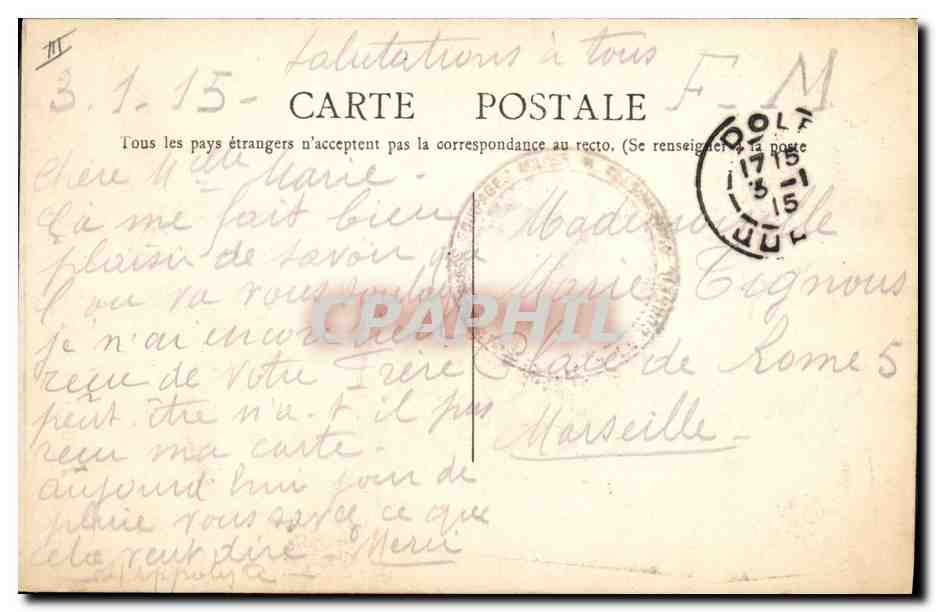 III
Salutations à tous
3.1.15- F-M
CARTE POSTALE
Tous les pays étrangers n'acceptent pas la correspondance au recto. (Se renseigner à la poste
Chère Melle Marie -
Ça me fait bien
plaisir de savoir
va vous
je n'ai encore rien
reçu de Votre Frère
peut être n'a-t il pas
reçu ma carte -
aujourd hui jour de
pluie vous savez ce que
cela veut dire - Merci
Hippolyte -
Mademoiselle
Marie Tignous
Place de Rome 5
Marseille -
17 15
3 -1
15
CPAPHIL